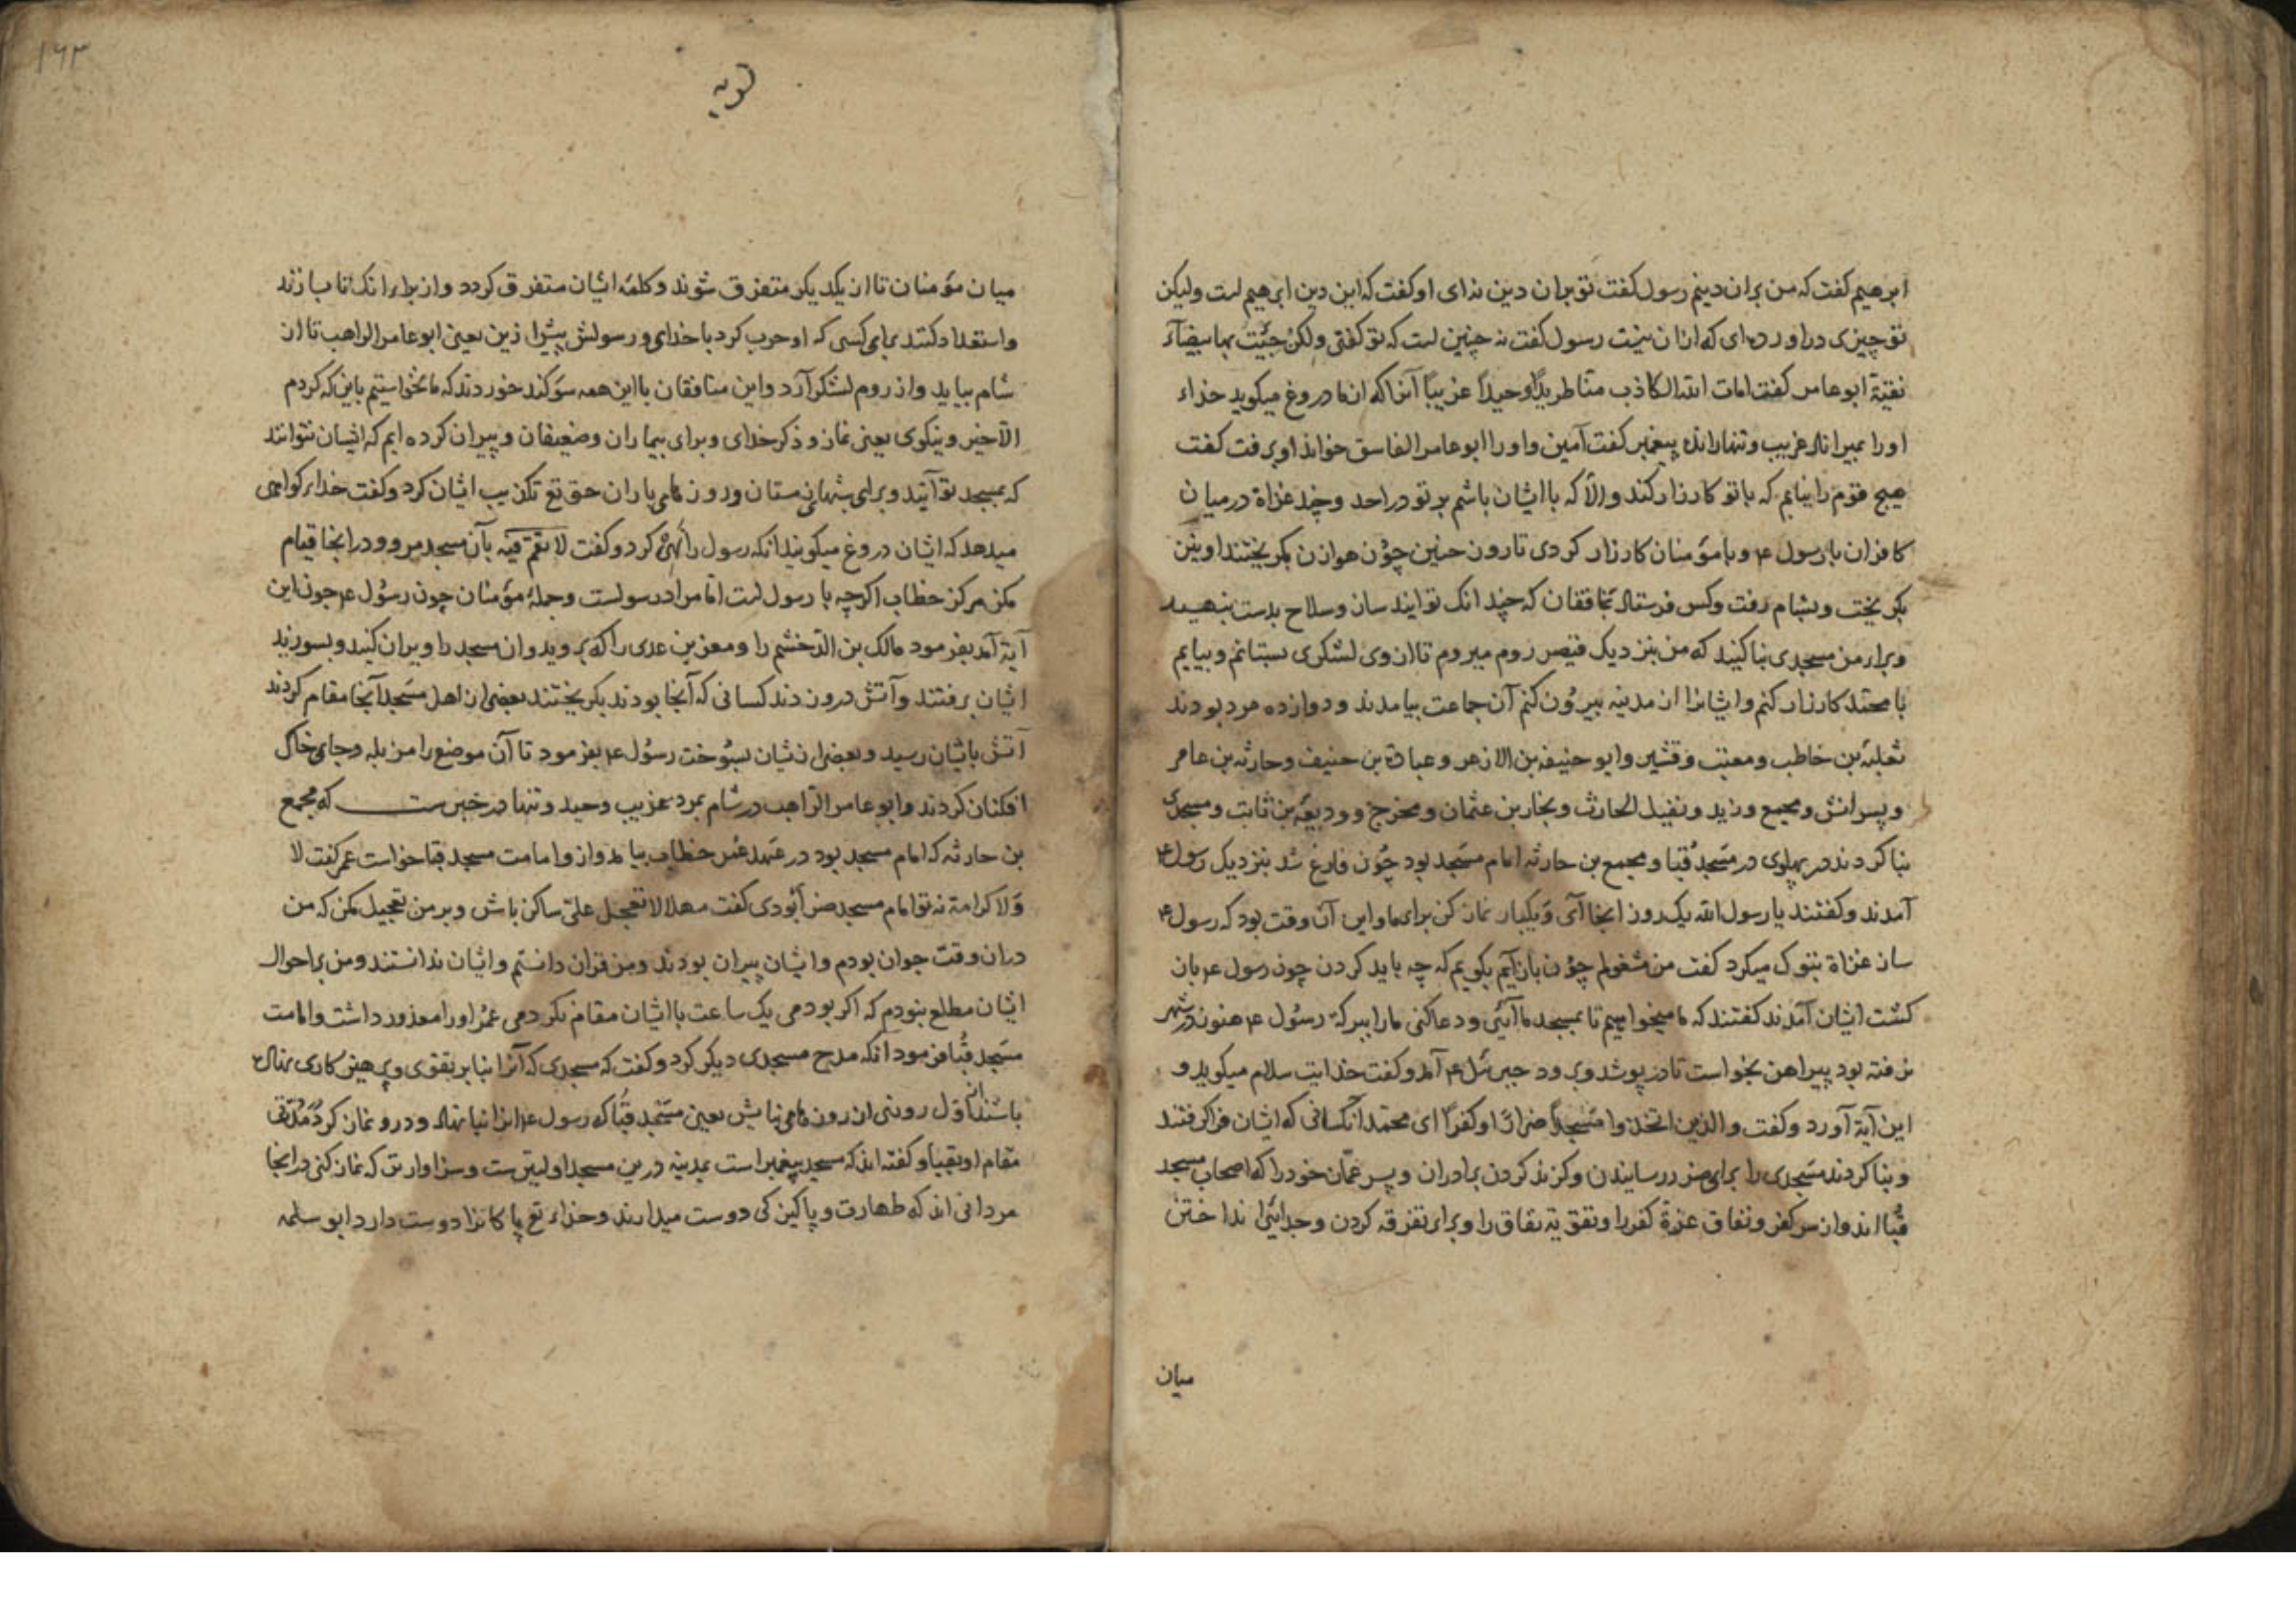 ابرهیم کفت که من بران دینم رسول کفت تو بران دین نه‌ای او کفت که این دین ابرهیم است ولیکن
تو چیزی دراورده‌ای که ازان نیست رسول کفت نه چنین است که تو کفتی ولکن جئت بها بیضآء
نقیة ابو عامر کفت امات الله الکاذب منا طریداً وحیداً غریباً آنرا که از ما دروغ میکوید خداء
اورا بمیراناد غریب و تنها رانده پیغمبر کفت آمین و اورا ابوعامر الفاسق خواند او برفت کفت
هیچ قوم را نیابم که با تو کارزار کند والا که با ایشان باشم بر تو در احد و چند غزاة در میان
کافران با رسول ۴ و با مؤمنان کارزار کردی تا روز حنین چون هوازن بکریختند او نیز
بکریخت و بشام رفت و کس فرستاد بمنافقان که چندانک توانید ساز و سلاح بدست بنهید
و برای من مسجدی بنا کنید که من بنزدیک قیصر روم میروم تا از وی لشکری بستانم و بیایم
با محمد کارزار کنم و ایشانرا از مدینه بیرون کنم آن جماعت بیامدند و دوازده مرد بودند
ثعلبة بن خاطب و معتب و قشیر و ابو حنیفه بن الازعر و عباد بن حنیف و حارثه بن عامر
و پسرانش و مجمع و زید و نفیل الحارث و بخار بن عثمان و مخرج و ودیعة بن ثابت و مسجدی
بنا کردند در پهلوی در مسجد قبا و مجمع بن حارثه امام مسجد بود چون فارغ شد بنزدیک رسول ۴
آمدند و کفتند یا رسول الله یک روز اینجا آی و یکبار نماز کن برای ما و این آن وقت بود که رسول ۴
ساز غزاة تبوک میکرد کفت من مشغولم چون بازآیم بکویم که چه باید کردن چون رسول ۴ باز
کشت ایشان آمدند کفتند که ما میخواهیم تا بمسجد ما آئی و دعا کنی ما را ببرکة رسول ۴ هنوز در شهر
نرفته بود پیراهن بخواست تا درپوشد و برود جبرئیل ۴ آمد و کفت خدایت سلام میکوید و
این آیة آورد و کفت والذین اتخذوا مسجداً ضراراً و کفراً ای محمد آنکسانی که ایشان فراکرفتند
و بنا کردند مسجدی را برای ضرر رسانیدن و کزند کردن برادران و پسر عمان خود را که اصحاب مسجد
قبا اند و از سر کفر و نفاق عزة کفر را و تقویة نفاق را و برای تفرقه کردن و جدائی انداختن
میان
۱۶۳
توبه
میان مؤمنان تا از یکدیکر متفرق شوند و کلمهٔ ایشان متفرق کردد و از برای انک تا بسازند
و استعداد کنند برای کسی که او حرب کرد با خدای و رسولش پیش ازین یعنی ابوعامر الراهب تا از
شام بیاید و از روم لشکر آرد و این منافقان با این همه سوکند خوردند که ما نخواستیم باین که کردم
الا خیر و نیکوی یعنی نماز و ذکر خدای و برای بیماران و ضعیفان و پیران کرده ایم که ایشان نتوانند
که بمسجد تو آیند و برای شبهای زمستان و روزهای باران حق تع تکذیب ایشان کرد و کفت خدای کواهی
میدهد که ایشان دروغ میکویند آنکه رسول را نهی کرد و کفت لا تقم فیه بآن مسجد مرو و در اینجا قیام
مکن هرکز خطاب اکرچه با رسول است اما مراد رسولست و جملهٔ مؤمنان چون رسول ۴ چون این
آیة آمد بفرمود مالک بن الدخشم را و معن بن عدی را که بروید و ان مسجد را ویران کنید و بسوزنید
ایشان برفتند و آتش درزدند کسانی که آنجا بودند بکریختند بعضی از اهل مسجد آنجا مقام کردند
آتش بایشان رسید و بعضی ازیشان بسوخت رسول ۴ بفرمود تا آن موضع را مزبله و جای خاک
افکنان کردند و ابوعامر الراهب در شام بمرد غریب وحید و تنها در خبرست که مجمع
بن حارثه که امام مسجد بود در عهد عمر خطاب بیامد و ازو امامت مسجد قبا خواست عمر کفت لا
ولا کرامة نه تو امام مسجد ضرار بودی کفت مهلا لا تعجل علیّ ساکن باش و بر من تعجیل مکن که من
دران وقت جوان بودم و ایشان پیران بودند و من قران دانستم و ایشان ندانستند و من بر احوال
ایشان مطلع نبودم که اکر بودمی یک ساعت با ایشان مقام نکردمی عمر او را معذور داشت و امامت
مسجد قبا فرمود انکه مدح مسجدی دیکر کرد و کفت که مسجدی که آنرا بنا بر تقوی و پرهیزکاری نهاده
باشند از اول روزی از روزهای بنایش یعنی مسجد قبا که رسول ۴ انرا بنا نهاد و درو نماز کرد مدتی
مقام او بقبا و کفته اند که مسجد پیغمبر است بمدینه درین مسجد اولیترست و سزاوارتر که نماز کنی در اینجا
مردانی اند که طهارت و پاکیزکی دوست میدارند و خدای تع پاکانرا دوست دارد ابو سلمه